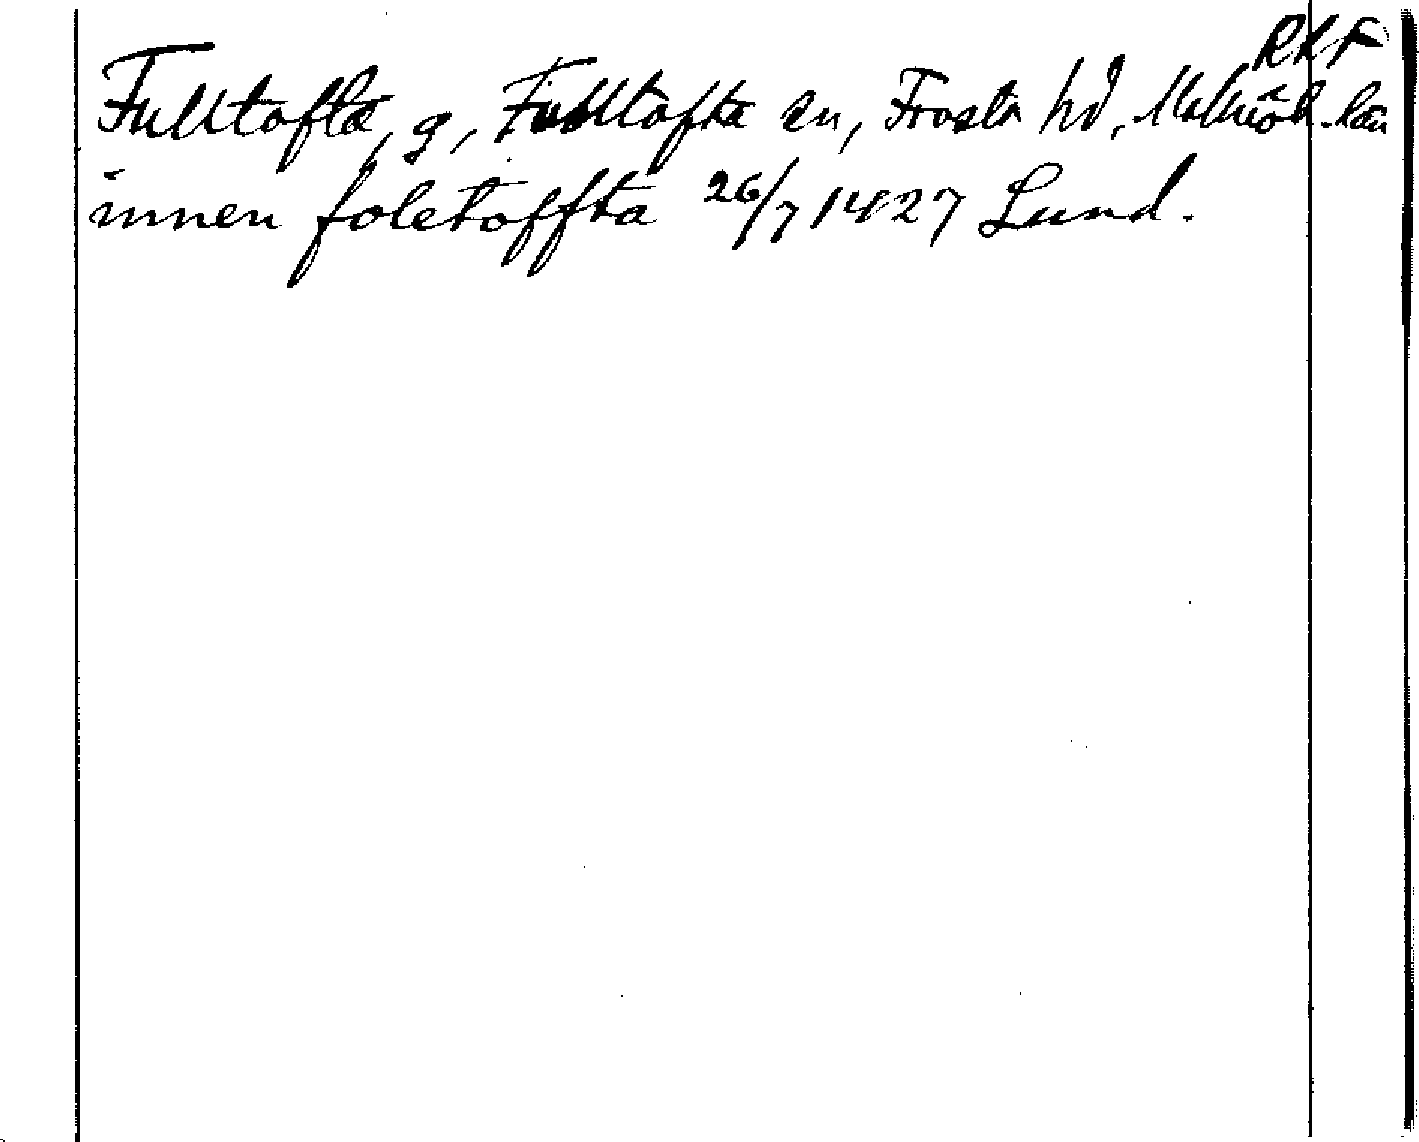 RKF
Fulltofta, g, Fulltofta sn, Frosta hd, Malmöh. län
innen foletoffta 26/7 1427 Lund.